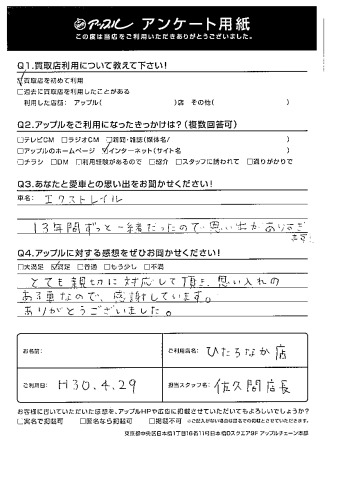 アップル アンケート用紙
この度は当店をご利用いただきありがとうございました。
Q1.買取店利用について教えて下さい!
☑買取店を初めて利用
□過去に買取店を利用したことがある
利用した店舗: アップル( )店 その他( )
Q2.アップルをご利用になったきっかけは?(複数回答可)
□テレビCM □ラジオCM □新聞・雑誌(媒体名/ )
□アップルのホームページ ☑インターネット(サイト名 )
□チラシ □DM □利用経験があるので □紹介 □スタッフに誘われて □通りがかりで
Q3.あなたと愛車との思い出をお聞かせください!
車名: エクストレイル
13年間ずっと一緒だったので思い出がありすぎ
ます!
Q4.アップルに対する感想をぜひお聞かせください!
□大満足 ☑満足 □普通 □もう少し □不満
とても親切に対応して頂き、思い入れの
ある車なので、感謝しています。
ありがとうございました。
お名前:
ご利用店名: ひたちなか店
ご利用日: H30.4.29
担当スタッフ名: 佐久間店長
お客様に書いていただいた感想を、アップルHPや広告に掲載させていただいてもよろしいでしょうか?
□実名で掲載可 □匿名なら掲載可 □掲載不可 ※ご記入がない場合は匿名での掲載とさせていただきます。
東京都中央区日本橋1丁目16番11号日本橋Dスクエア9F アップルチェーン本部